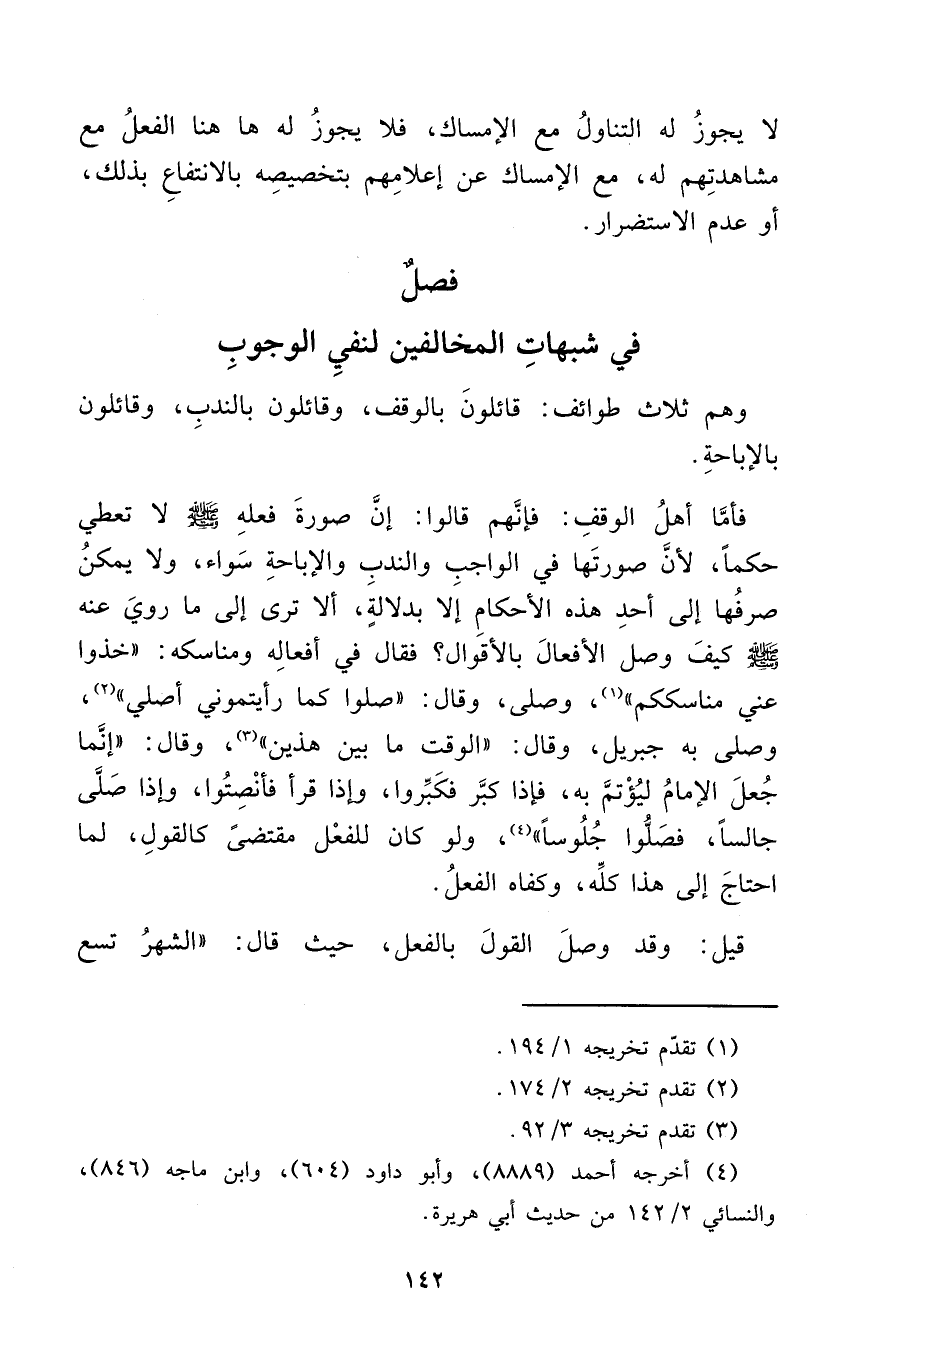 لا يجوزُ له التناولُ مع الإمساك، فلا يجوزُ له ها هنا الفعلُ مع
مشاهدتِهم له، مع الإمساك عن إعلامِهم بتخصيصِه بالانتفاعِ بذلك،
أو عدم الاستضرار.
فصلٌ
في شبهاتِ المخالفين لنفيِ الوجوبِ
وهم ثلاث طوائف: قائلونَ بالوقف، وقائلون بالندبِ، وقائلون
بالإباحةِ.
فأمَّا أهلُ الوقفِ: فإنَّهم قالوا: إنَّ صورةَ فعلهِ ﷺ لا تعطي
حكماً، لأنَّ صورتَها في الواجبِ والندبِ والإباحةِ سَواء، ولا يمكنُ
صرفُها إلى أحدِ هذه الأحكامِ إلا بدلالةٍ، ألا ترى إلى ما رويَ عنه
ﷺ كيفَ وصل الأفعالَ بالأقوال؟ فقال في أفعالِه ومناسكه: «خذوا
عني مناسككم»(١)، وصلى، وقال: «صلوا كما رأيتموني أصلي»(٢)،
وصلى به جبريل، وقال: «الوقت ما بين هذين»(٣)، وقال: «إنَّما
جُعلَ الإمامُ ليُؤْتمَّ به، فإذا كبَّر فكَبِّروا، وإذا قرأ فأنْصِتُوا، وإذا صَلَّى
جالساً، فصَلُّوا جُلُوساً»(٤)، ولو كان للفعْل مقتضىً كالقولِ، لما
احتاجَ إلى هذا كلِّه، وكفاه الفعلُ.
قيل: وقد وصلَ القولَ بالفعل، حيث قال: «الشهرُ تسع
(١) تقدّم تخريجه ١/ ١٩٤.
(٢) تقدم تخريجه ٢/ ١٧٤.
(٣) تقدم تخريجه ٣/ ٩٢.
(٤) أخرجه أحمد (٨٨٨٩)، وأبو داود (٦٠٤)، وابن ماجه (٨٤٦)،
والنسائي ٢/ ١٤٢ من حديث أبي هريرة.
١٤٢